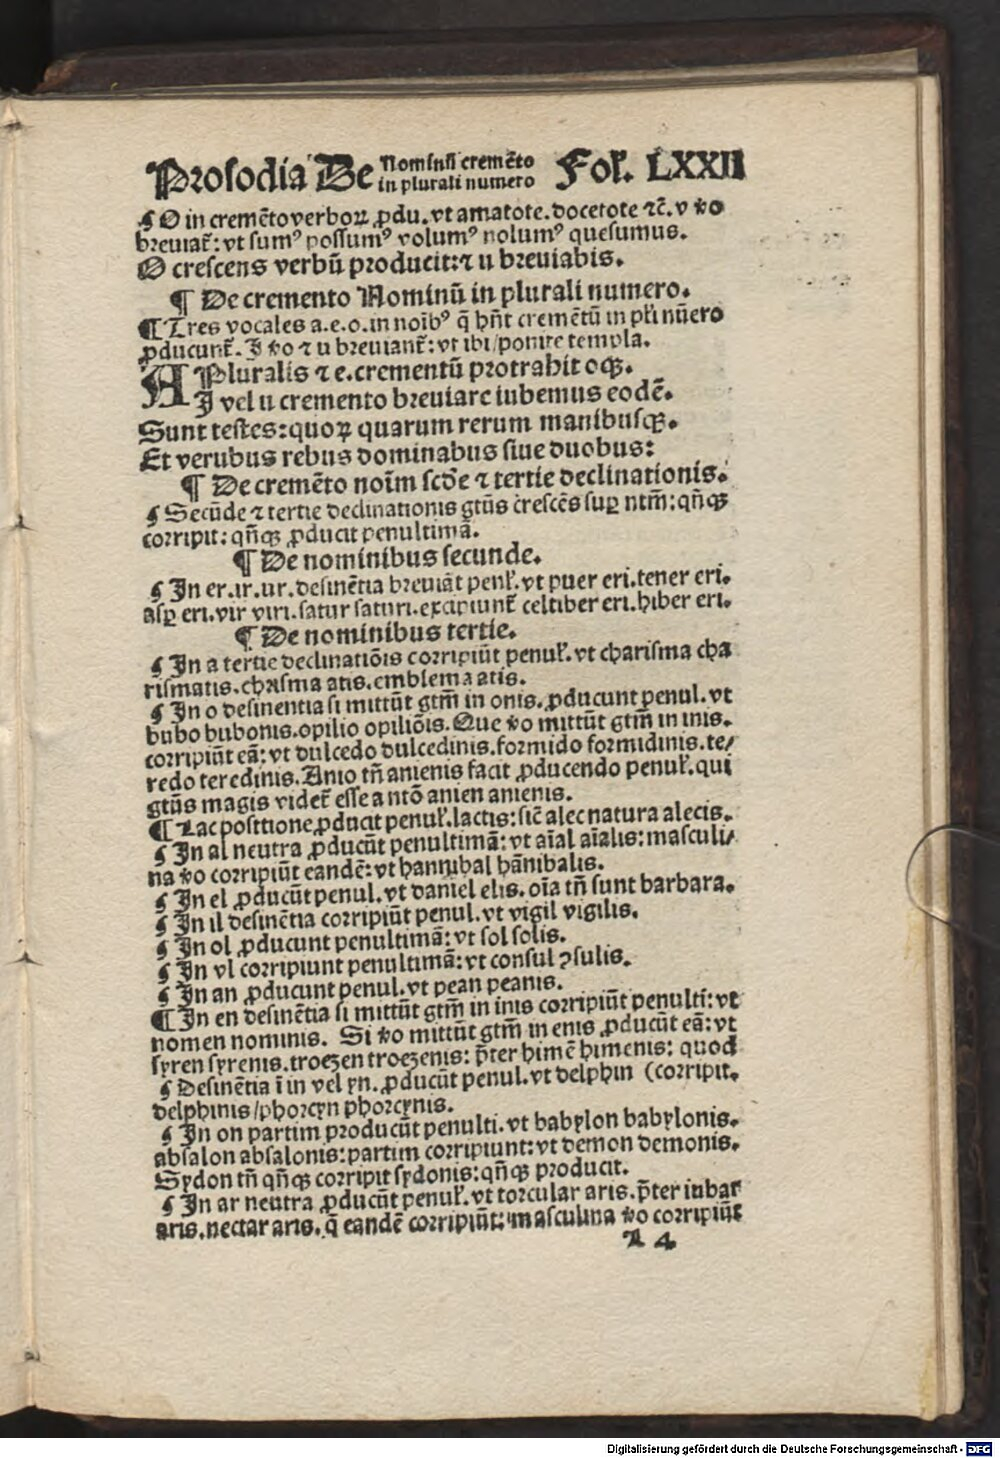 Prosodia De Nominū cremēto in plurali numero Fol. LXXII
¶ O in cremēto verboꝝ ꝓdu. vt amatote. docetote ⁊c̄. v v̓o
breuiat̄: vt sumꝰ possumꝰ volumꝰ nolumꝰ quesumus.
O crescens verbū producit: ⁊ u breuiabis.
¶ De cremento Nominū in plurali numero.
¶ Tres vocales a.e.o. in noībꝰ q̄ hn̄t cremētū in pl̄i nūero
ꝓducunt̄. I v̓o ⁊ u breuiant̄: vt ibi/ ponite templa.
A Pluralis ⁊ e. crementū protrahit oqꝫ.
I vel u cremento breuiare iubemus eodē.
Sunt testes: quoꝝ quarum rerum manibusqꝫ.
Et verubus rebus dominabus siue duobus:
¶ De cremēto noīm scd̄e ⁊ tertie declinationis.
¶ Secūde ⁊ tertie declinationis gtūs crescēs suꝑ ntm̄: qn̄qꝫ
corripit: qn̄qꝫ ꝓducit penultimā.
¶ De nominibus secunde.
¶ In er.ir.ur. desinētia breuiāt penl̓. vt puer eri. tener eri.
asꝑ eri. vir viri. satur saturi. excipiunt̄ celtiber eri. hiber eri.
¶ De nominibus tertie.
¶ In a tertie declinatiōis corripiūt penul̓. vt charisma cha
rismatis. chrisma atis. emblema atis.
¶ In o desinentia si mittūt gtm̄ in onis. ꝓducunt penul. vt
bubo bubonis. opilio opiliōis. Que v̓o mittūt gtm̄ in inis.
corripiūt eā: vt dulcedo dulcedinis. formido formidinis. te/
redo teredinis. Anio tn̄ anienis facit ꝓducendo penul̓. qui
gtūs magis videt̄ esse a ntō anien anienis.
¶ Lac posttione ꝓducit penul̓. lactis: sic̄ alec natura alecis.
¶ In al neutra ꝓducūt penultimā: vt aīal aīalis: masculi/
na v̓o corripiūt eandē: vt hannibal hānibalis.
¶ In el ꝓducūt penul. vt daniel elis. oīa tn̄ sunt barbara.
¶ In il desinētia corripiūt penul. vt vigil vigilis.
¶ In ol ꝓducunt penultimā: vt sol solis.
¶ In vl corripiunt penultimā: vt consul ꝯsulis.
¶ In an ꝓducunt penul. vt pean peanis.
¶ In en desinētia si mittūt gtm̄ in inis corripiūt penulti: vt
nomen nominis. Si v̓o mittūt gtm̄ in enis ꝓducūt eā: vt
syren syrenis. troezen troezenis: p̄ter himē himenis: quod
¶ Desinētia ī in vel yn. ꝓducūt penul. vt delphin (corripit.
delphinis/ phorcyn phorcynis.
¶ In on partim producūt penulti. vt babylon babylonis.
absalon absalonis: partim corripiunt: vt demon demonis.
Sydon tn̄ qn̄qꝫ corripit sydonis: qn̄qꝫ producit.
¶ In ar neutra ꝓducūt penul̓. vt torcular aris. p̄ter iubar
aris. nectar aris. q̄ eandē corripiūt: masculina v̓o corripiūt
4
Digitalisierung gefördert durch die Deutsche Forschungsgemeinschaft - DFG